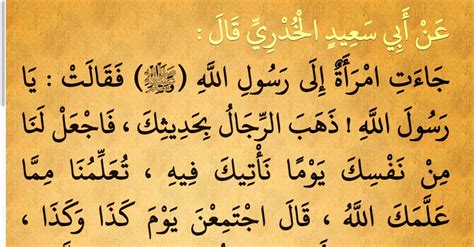 عَنْ أَبِي سَعِيدٍ الْخُدْرِيِّ قَالَ :
جَاءَتِ امْرَأَةٌ إِلَى رَسُولِ اللَّهِ (ﷺ) فَقَالَتْ : يَا
رَسُولَ اللَّهِ ! ذَهَبَ الرِّجَالُ بِحَدِيثِكَ ، فَاجْعَلْ لَنَا
مِنْ نَفْسِكَ يَوْمًا نَأْتِيكَ فِيهِ ، تُعَلِّمُنَا مِمَّا
عَلَّمَكَ اللَّهُ ، قَالَ اجْتَمِعْنَ يَوْمَ كَذَا وَكَذَا ،